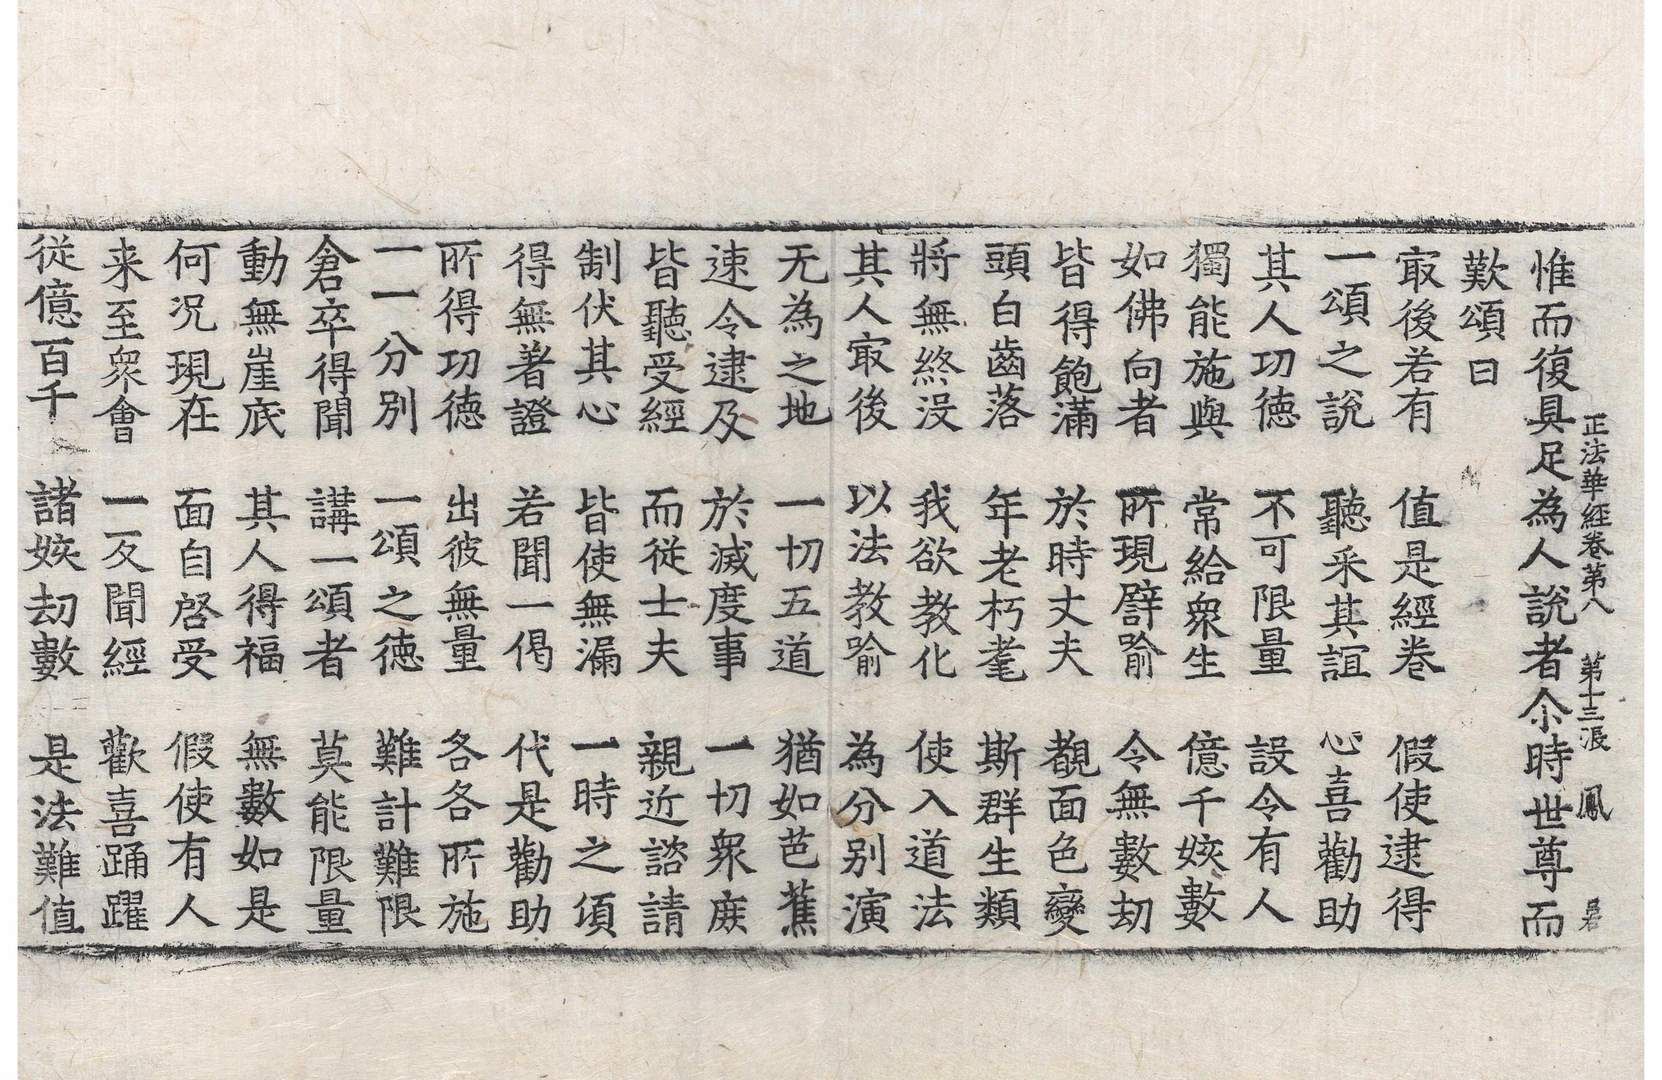 正法華經卷第八 第十三張 鳳
惟而復具足為人說者尒時世尊而
歎頌曰
㝡後若有 值是經卷 假使逮得
一頌之說 聽采其誼 心喜勸助
其人功德 不可限量 設令有人
獨能施與 常給眾生 億千姟數
如佛向者 所現譬喻 令無數劫
皆得飽滿 於時丈夫 覩面色變
頭白齒落 年老朽耄 斯群生類
將無終没 我欲教化 使入道法
其人㝡後 以法教喻 為分別演
无為之地 一切五道 猶如芭蕉
速令逮及 於滅度事 一切眾庶
皆聽受經 而從士夫 親近諮請
制伏其心 皆使無漏 一時之頃
得無著證 若聞一偈 代是勸助
所得功德 出彼無量 各各所施
一一分別 一頌之德 難計難限
倉卒得聞 講一頌者 莫能限量
動無崖底 其人得福 無數如是
何況現在 面自啓受 假使有人
来至眾會 一反聞經 歡喜踊躍
從億百千 諸姟劫數 是法難值